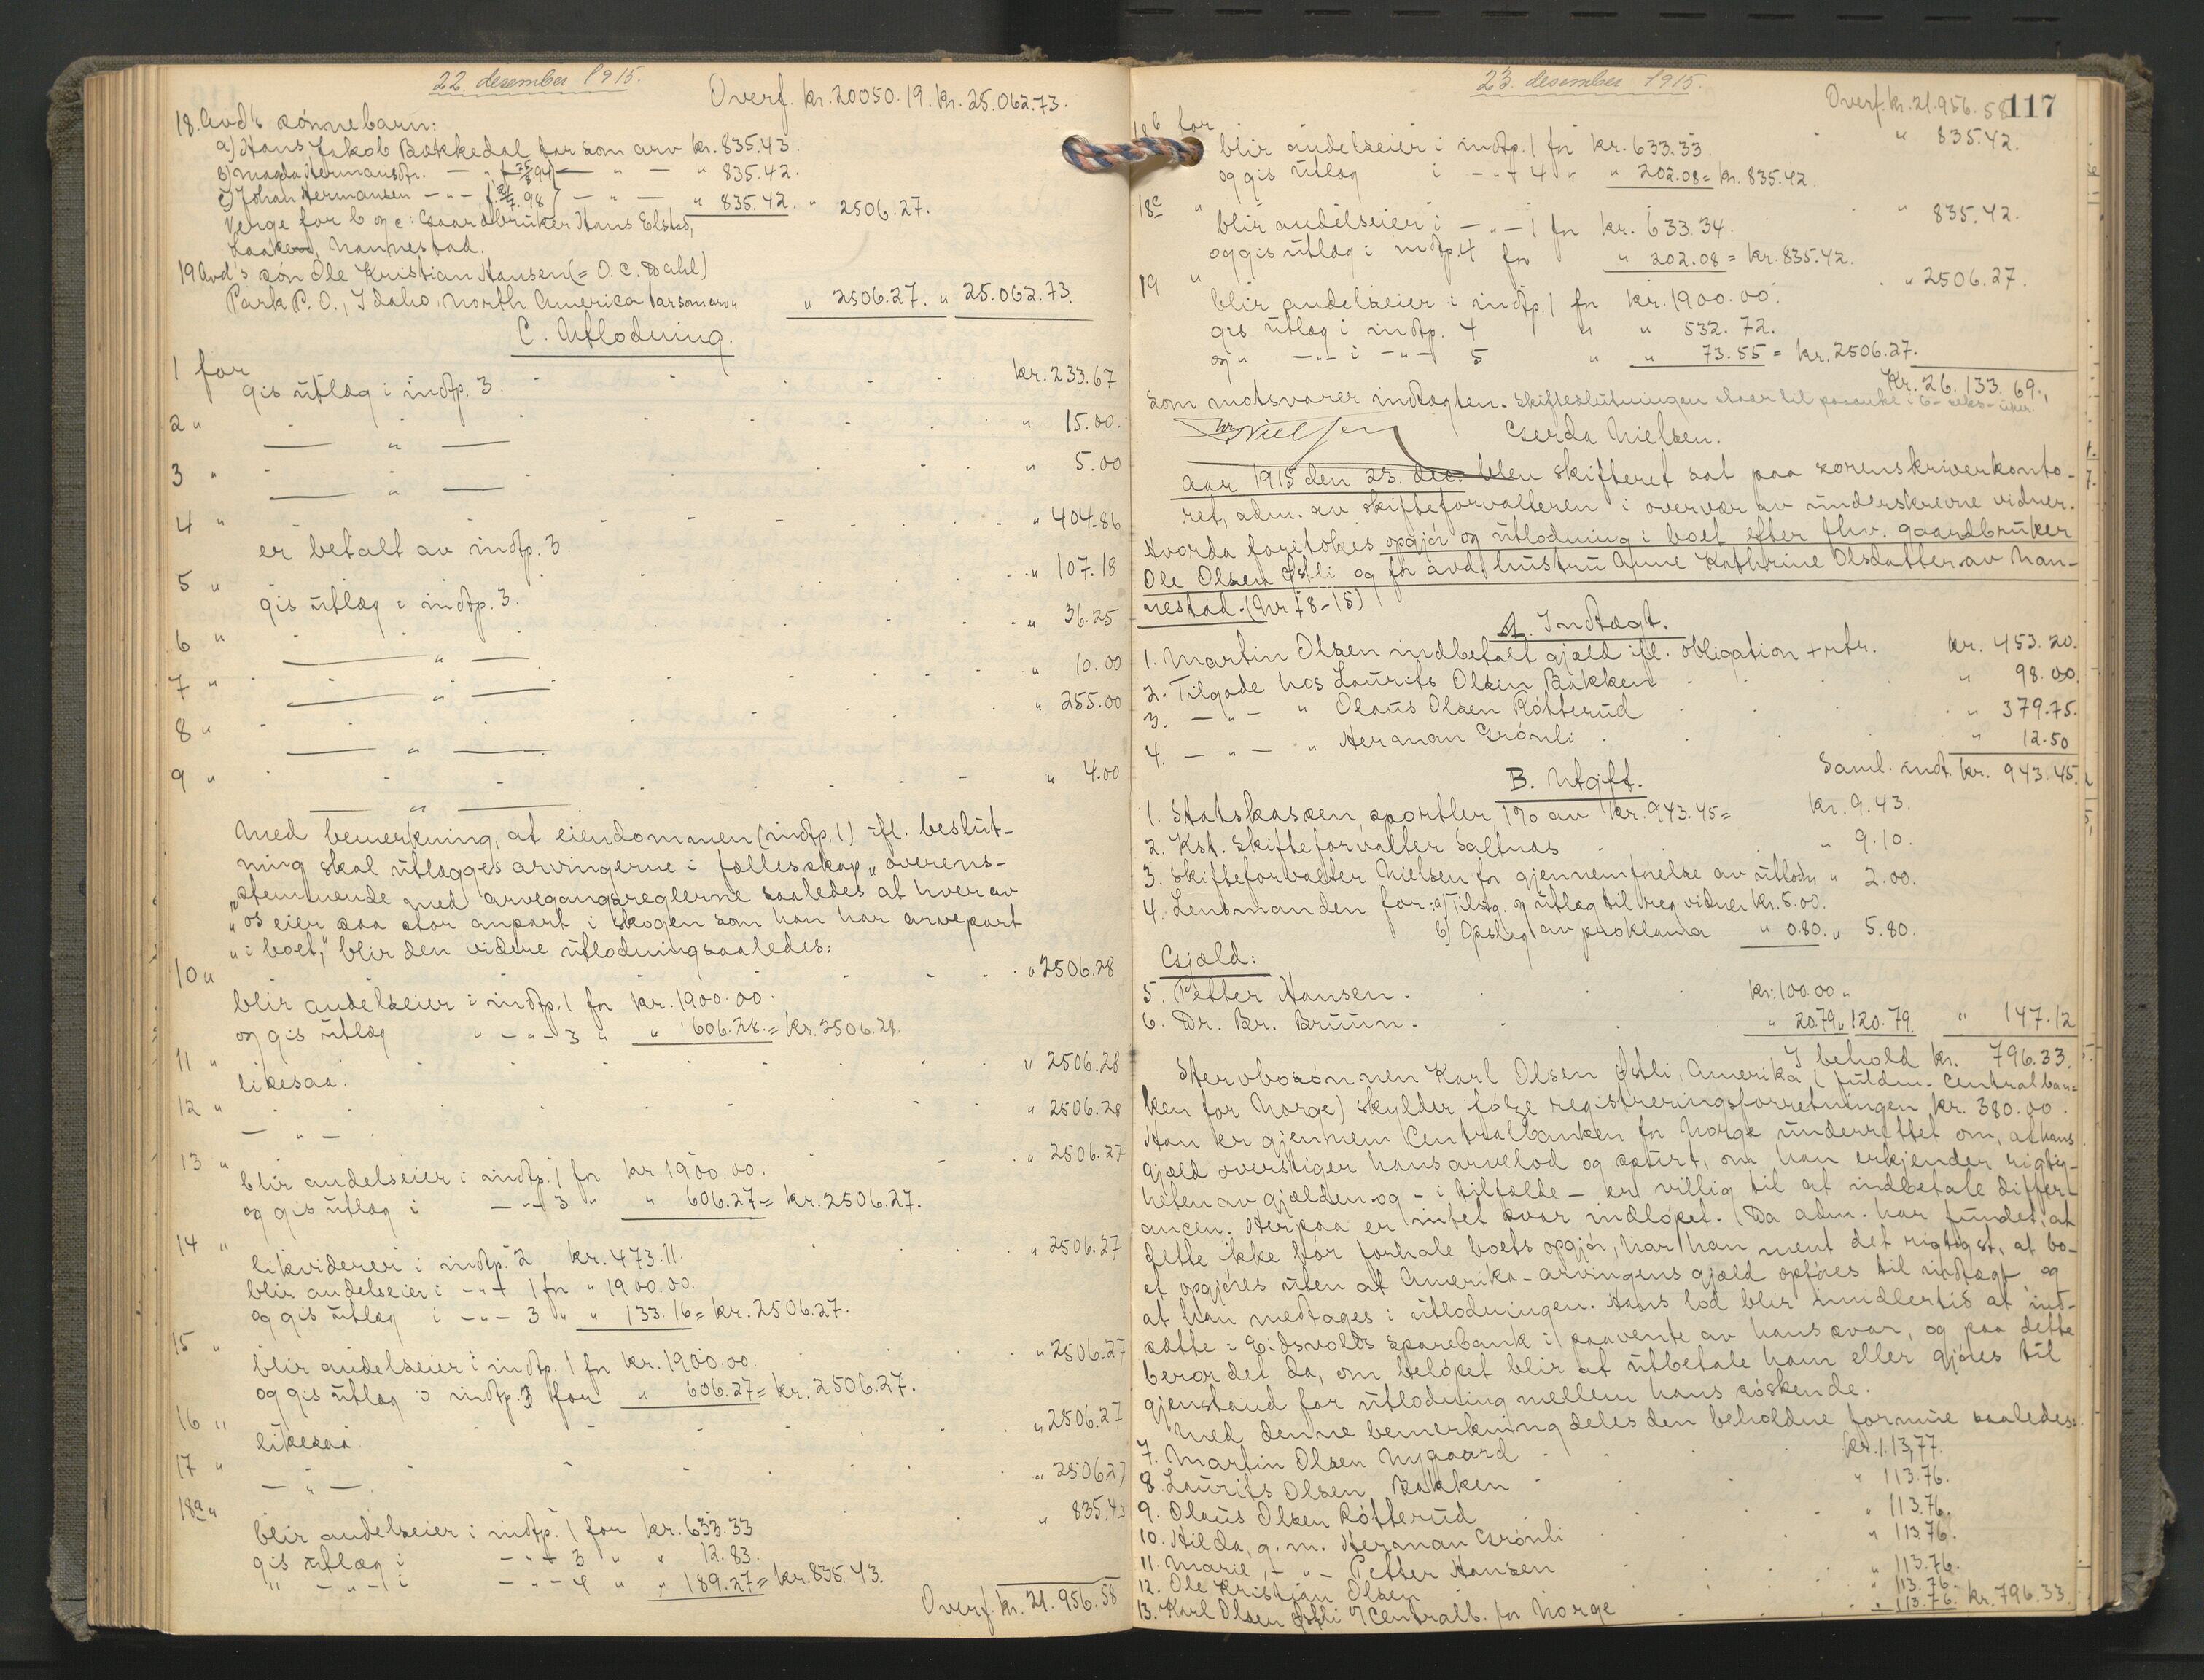 22. desember 1915.
Overf. kr. 20050.19. kr. 25.062.73.
18. Avd's sönnebarn:
a) Hans Jakob Bækkedal far som arv kr. 835.43.
b) Magda Hermansdtr. — " — f. 25/8.94) — " — " 835.42.
c) Johan Hermansen — " — f. 21/7.98) — " — " 835.42. " 2506.27.
Verge for b og c: Gaardbruker Hans Elstad,
Laaken, Nannestad.
19 Avd's sön Ole Kristian Hansen (= O. C. Dahl)
Park P. O., Idaho, North America far som arv " 2506.27. " 25.062.73.
C. Utlodning.
1 for kr. 233.67
gis utlæg i indtp. 3.
2 " " 15.00.
— " —
3 " " 5.00
— " —
4 " " 404.86
er betalt av indtp. 3.
5 " " 107.18
gis utlæg i indtp. 3.
6 " " 36.25
— " —
7 " " 10.00
— " —
8 " " 255.00
— " —
9 " " 4.00
— " —
Med bemerkning, at eiendommen (indtp. 1) ifl. beslut-
ning skal utlægges arvingerne i fællesskap „overens-
„stemmende med arvegangsreglerne saaledes at hver av
„os eier saa stor anpart i skogen som han har arvepart
„i boet," blir den videre utlodning saaledes:
10 " " 2506.28
blir andelseier i indtp. 1 for kr. 1900.00.
og gis utlæg " — " — 3 " " 606.28. = kr. 2506.28.
11 " " 2506.28
likesaa.
12 " " 2506.28
— " —
13 " " 2506.27
blir andelseier i indtp. 1 for kr. 1900.00.
og gis utlæg i — " — 3 " " 606.27 = kr. 2506.27.
14 " " 2506.27
likviderer i indtp. 2 kr. 473.11.
blir andelseier i — " — 1 for " 1900.00.
og gis utlæg i — " — 3 " " 133.16 = kr. 2506.27.
15 " " 2506.27
blir andelseier i indtp. 1 for kr. 1900.00.
og gis utlæg i indtp. 3 for " 606.27 = kr. 2506.27.
16 " " 2506.27
likesaa
17 " " 2506.27
— " —
18a " " 835.43
blir andelseier i indtp. 1 for kr. 633.33
gis utlæg i — " — 3 " " 12.83.
" — " — i — " — 4 " " 189.27 = kr. 835.43.
Overf. kr. 21.956.58
23. desember 1915.
Overf. kr. 21.956.58
117
18b for " 835.42.
blir andelseier i indtp. 1 for kr. 633.33.
og gis utlæg i — " — 4 " " 202.08 = kr. 835.42.
18c " " 835.42.
blir andelseier i — " — 1 for kr. 633.34.
og gis utlæg i indtp. 4 for " 202.08 = kr. 835.42.
19 " " 2506.27.
blir andelseier i indtp. 1 for kr. 1900.00.
gis utlæg i indtp. 4 " " 532.72.
og " — " — i — " — 5 " " 73.55 = kr. 2506.27.
Kr. 26.133.69.,
som motsvarer indtægten. Skifteslutningen staar til paaanke i 6 - seks - uker.
Nielsen
Gerda Nielsen.
Aar 1915 den 23. dec. blev skifteret sat paa sorenskriverkonto-
ret, adm. av skifteforvalteren i overvær av underskrevne vidner.
Hvorda foretokes opgjör og utlodning i boet efter fhv. gaardbruker
Ole Olsen Østli og för avd. hustru Anne Kathrine Olsdatter av Nan-
nestad. (Nr 78-15)
A. Indtægt.
1. Martin Olsen indbetalt gjæld ifl. obligation + rtr. kr. 453.20.
2. Tilgode hos Laurits Olsen Bakken " 98.00.
3. — " — " Olaus Olsen Rötterud " 379.75.
4. — " — " Herman Grönli " 12.50
Saml. indt. kr. 943.45.
B. Utgift.
1. Statskassen, sportler 1% av kr. 943.45 = kr. 9.43.
2. Kst. skifteforvalter Saltnæs " 9.10.
3. Skifteforvalter Nielsen for gjennemförelse av utlodn. " 2.00.
4. Lensmanden for: a) Tilstg. og utlæg til reg. vidner kr. 5.00.
b) Opslag av proklama " 0.80. " 5.80.
Gjæld:
5. Petter Hansen. kr. 100.00 "
6. Dr. Kr. Bruun. " 20.79 " 120.79. " 147.12
I behold kr. 796.33.
Stervbosönnen Karl Olsen Østli, Amerika (fuldm. Centralban-
ken for Norge) skylder ifölge registreringsforretningen kr. 380.00.
Han er gjennem Centralbanken for Norge underrettet om, at hans
gjæld overstiger hans arvelod og spurt, om han erkjender rigtig-
heten av gjælden og - i tilfælde - er villig til at indbetale differ-
ancen. Herpaa er intet svar indlöpet. Da adm. har fundet, at
dette ikke bör forhale boets opgjör, har han ment det rigtigst, at bo-
et opgjöres uten at Amerika-arvingens gjæld opföres til indtægt og
at han medtages i utlodningen. Hans lod blir imidlertid at ind-
sætte i Eidsvolds sparebank i paavente av hans svar, og paa dette
beror det da, om belöpet blir at utbetale ham eller gjöres til
gjenstand for utlodning mellem hans söskende.
Med denne bemerkning deles den beholdne formue saaledes:
7. Martin Olsen Nygaard kr. 113.77.
8. Laurits Olsen Bakken " 113.76.
9. Olaus Olsen Rötterud " 113.76.
10. Hilda, g. m. Herman Grönli " 113.76.
11. Marie, — " — Petter Hansen " 113.76.
12. Ole Kristian Olsen " 113.76.
13. Karl Olsen Østli v/ Centralb. for Norge " 113.76. kr. 796.33